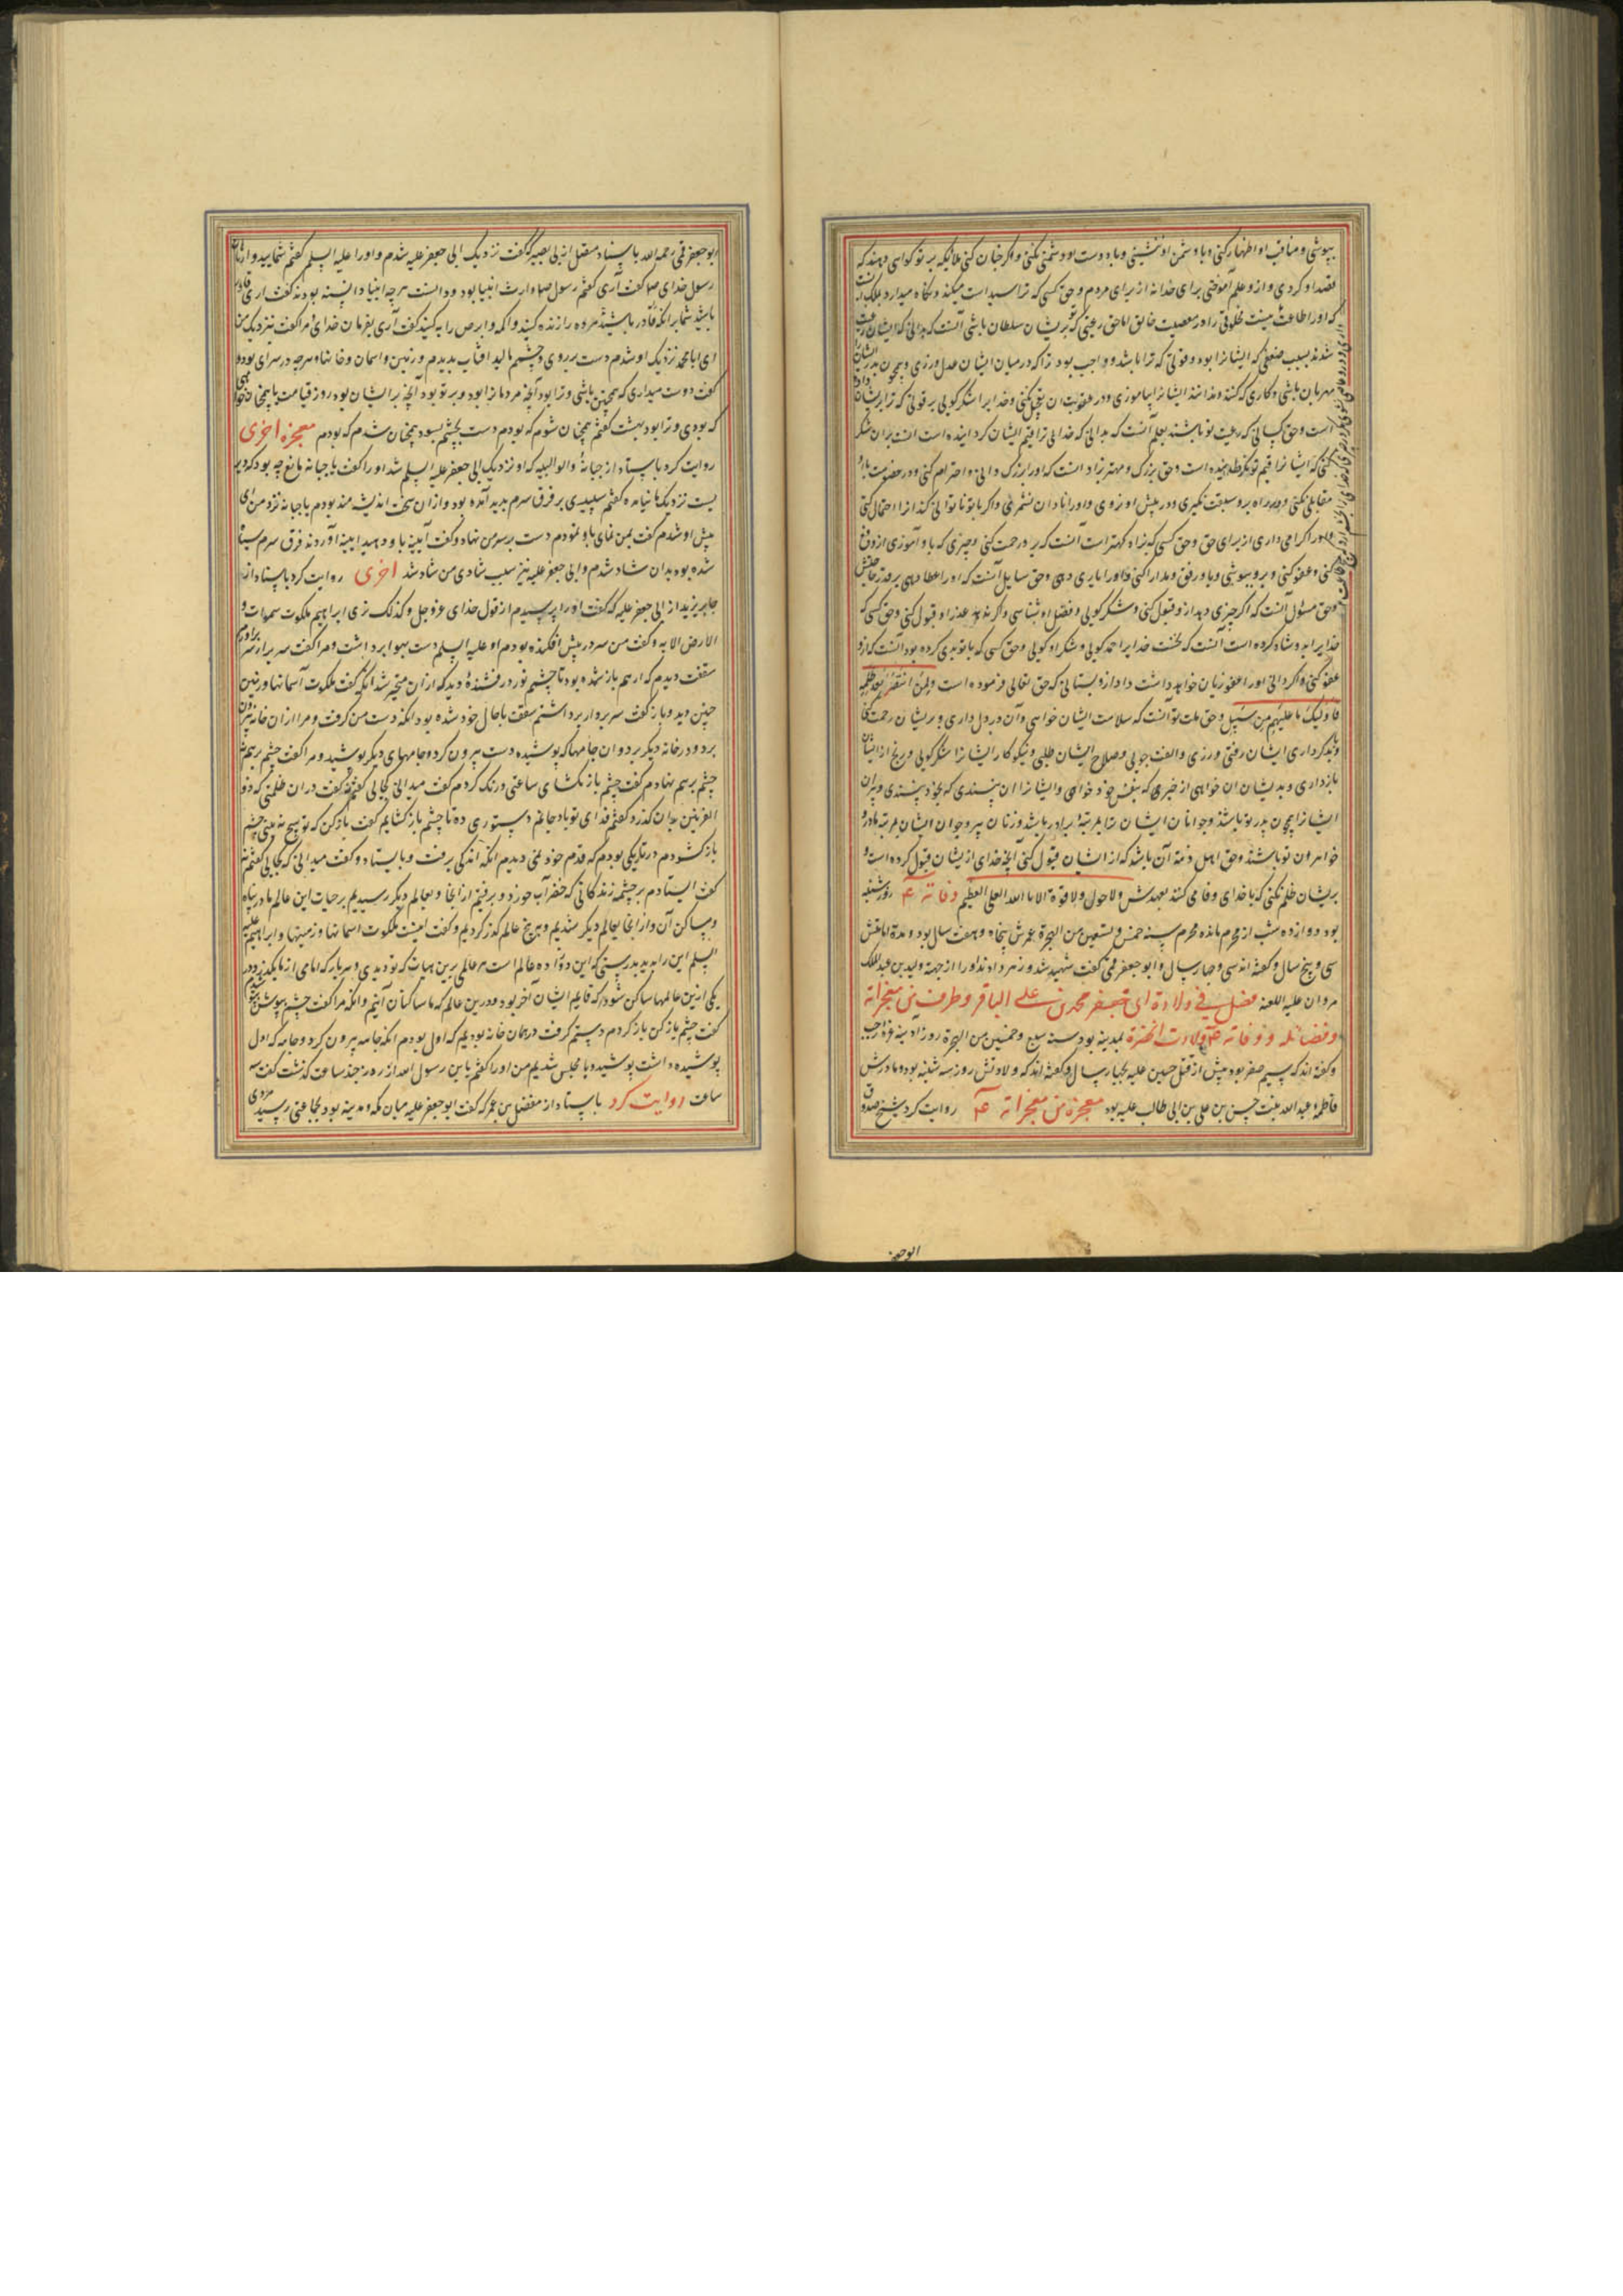 بپوشی و مناقب او اظهار کنی و با دشمن او ننشینی و با دوست او دشمنی نکنی و اگر چنان کنی ملائکه بر تو گواهی دهند که
قصد او کردی و از و علم آموختی برای خدا نه از برای مردم و حق کسی که ترا سیداست میکند و نگاه میدارد بملک آنست
که او را اطاعت کنی و نیست مخلوقی را در معصیت خالق اما حق رعیتی که تو بریشان سلطان باشی آنست که بدانی که ایشان رعیت
شدند بسبب ضعفی که ایشانرا بود و قوتی که ترا باشد و واجب بود ترا که در میان ایشان عدل ورزی و همچون پدر ایشان را
مهربان باشی و کاری که کنند و ندانند ایشانرا بیاموزی و در عقوبت ان تعجیل نکنی و خدایرا شکر گویی بر قوتی که ترا بریشان داده
است و حق کسانی که رعیت تو باشند بعلم آنست که بدانی که خدای ترا قیم ایشان گردانیده است
کنی که ایشانرا قیم تو گردانیده است و حق بزرگ و مهتر بزاد آنست که او را بزرگ دانی و احترام کنی و در خصومت با او
مقابلی نکنی و در راه برو سبقت نگیری و در پیش او نروی و او را نادان نشمری و اگر با تو نادانی کند ازو احتمال کنی
و او را گرامی داری از برای حق و حق کسی که بزاد کهتر است آنست که برو رحمت کنی و چیزی که باو آموزی ازو رفع
کنی و عفو کنی و برو بپوشی و باو رفق و مدارا کنی و او را یاری دهی و حق سایل آنست که او را عطا دهی بر قدر حاجتش
و حق مسئول آنست که اگر چیزی دهد ازو قبول کنی و شکر گویی و فضل او بشناسی و اگر ندهد عذر او قبول کنی و حق کسی که
خدایرا بدو شاد کرده است آنست که نخست خدایرا حمد گویی و شکر او گویی و حق کسی که با تو بدی کرده بود آنست که ازو
عفو کنی و اگر دانی او را عفو زیان خواهد داشت داد ازو بستانی که حق تعالی فرموده است و لمن انتصر بعد ظلمه
فاولیک ما علیهم من سبیل و حق ملت تو آنست که سلامت ایشان خواهی و آن در دل داری و بریشان رحمت کنی
و با بدکرداری ایشان رفق ورزی و الفت جویی و صلاح ایشان طلبی و نیکوکار ایشانرا شکر گویی و رنج از ایشان
بازداری و بدیشان ان خواهی از خیری که بنفس خود خواهی و ایشانرا ان پسندی که بخود پسندی و پیران
ایشانرا همچون پدر تو باشند و جوانان ایشان ترا بمرتبه برادر باشند و زنان پیر و جوان ایشان بمرتبه مادر و
خواهرون تو باشند و حق اهل ذمه آن باشد که از ایشان قبول کنی آنچه خدای ازیشان قبول کرده است و
بریشان ظلم نکنی که با خدای وفا می کنند بعهدش ولا حول ولا قوة الا بالله العلی العظیم وفاته ع روز شنبه
بود دوازده شب از محرم مانده محرم سنه خمس و تسعین من الهجرة عمرش پنجاه و هفت سال بود و مدة امامتش
سی و پنج سال و گفته اند سی و چهار سال و ابو جعفر قمی گفت شهید شد و زهر دادند او را از جهة ولید بن عبد الملک
مروان علیه اللعنه فصل فی ولادة ابی جعفر محمد بن علی الباقر و طرف من معجزاته
و فضائله و وفاته ع ولادت آنحضرة بمدینه بود سنه سبع و خمسین من الهجرة روز ادینه غره رجب
و گفته اند که سیم صفر بود پیش از قتل حسین علیه بچهار سال و گفته اند که ولادتش روز سه شنبه بوده مادرش
فاطمه ام عبد الله بنت حسن بن علی بن ابی طالب علیه بود معجزة من معجزاته ع روایت کرد شیخ صدوق
ابو جعفر
ابو جعفر قمی رحمه الله باسناد مفضل از ابی بصیر که گفت نزدیک ابی جعفر علیه شدم و او را علیه السلم گفتم شمایید وارثان
رسول خدای ص گفت آری گفتم رسول ص وارث انبیا بود و دانست هر چه انبیا دانسته بودند گفت آری گفتم قادر
باشید شما بر انکه مرده را زنده کنید و اکمه و ابرص را به کنید گفت آری بفرمان خدای مرا گفت نزدیک من
ای ابا محمد نزدیک او شدم دست بر روی و چشم مالید افتاب بدیدم و زمین و اسمان و خانها و هر چه در سرای بود و
گفت دوست میداری که همچنین باشی و ترا بود آنچه مردمانرا بود و بر تو بود آنچه بر ایشان بود روز قیامت یا همچنان خواهی
که بودی و ترا بود بهشت گفتم همچنان شوم که بودم دست بچشم بسود همچنان شدم که بودم معجزه اخری
روایت کرد باسناد از حبابة الوالبیه که او نزدیک ابی جعفر علیه السلم شد او را گفت یا حبابه مانع چه بود که دیر
یست نزدیک ما نیامده گفتم سپیدی بر فرق سرم پدید آمده بود و از ان سخت اندیشه مند بودم یا حبابه نزد من ای
پیش او شدم گفت بمن نمای باو نمودم دست بر سر من نهاد و گفت آیینه باو دهید ایینه آوردند فرق سرم سیاه
شده بود بدان شاد شدم و ابی جعفر علیه نیز سبب شادی من شاد شد اخری روایت کرد باسناد از
جابر یزید از ابی جعفر علیه که گفت او را پرسیدم از قول خدای عزوجل و کذلک نری ابراهیم ملکوت سموات و
الارض الایه و گفت من سر در پیش افکنده بودم او علیه السلم دست بهوا برداشت و مرا گفت سر برار سر براوردم
سقفت دیدم که از هم باز شده بود تا چشم نور درفشنده دید که ازان متحیر شد انگه گفت ملکوت آسمانها و زمین
چنین دید و باز گفت سر بردار برداشتم سقف باحال خود شده بود انگه دست من گرفت و مرا از ان خانه بیرون
برد و در خانه دیگر برد و ان جامها که پوشیده دست بیرون کرد و جامهای دیگر پوشید و مرا گفت چشم بر هم نه
چشم بر هم نهادم گفت چشم باز نگشای ساعتی درنگ کردم گفت میدانی کجایی گفتم نه گفت در ان ظلمتی که ذو
القرنین بدان گذرد گفتم فدای تو باد جانم دستوری ده تا چشم باز گشایم گفت باز کن که تو هیچ نه بینی چشم
باز گشودم در تاریکی بودم که قدم خود نمی دیدم انگه اندکی برفت و بایستاد و گفت میدانی که کجایی گفتم نه
گفت ایستادم بر چشمه زندگانی که خضر آب خورد و برفتیم از انجا و بعالم دیگر رسیدیم
و مساکن آن و از انجا بعالم دیگر شدیم و به پنج عالم گذر کردیم و گفت اینست ملکوت اسمانها و زمینها و ابراهیم علیه
السلم این را ندید بدرستی که این دوازده عالم است هر عالمی برین هیات که تو دیدی و هر بار که امامی از ما بگذرد در
یکی ازین عالمها ساکن شود که قایم ایشان آخر بود و درین عالم که ما ساکنان آنیم و انگه مرا گفت چشم بپوش بپوشیدم
گفت چشم باز کن باز کردم دستم گرفت در همان خانه بودیم که اول بودم انگه جامه بیرون کرد و جامه که اول
پوشیده داشت پوشید و با مجلس شدیم من او را گفتم یا بن رسول الله از روز چند ساعت گذشت گفت سه
ساعت روایت کرد باسناد از مفضل بن عمر که گفت ابو جعفر علیه میان مکه و مدینه بود بجماعتی رسید مردی